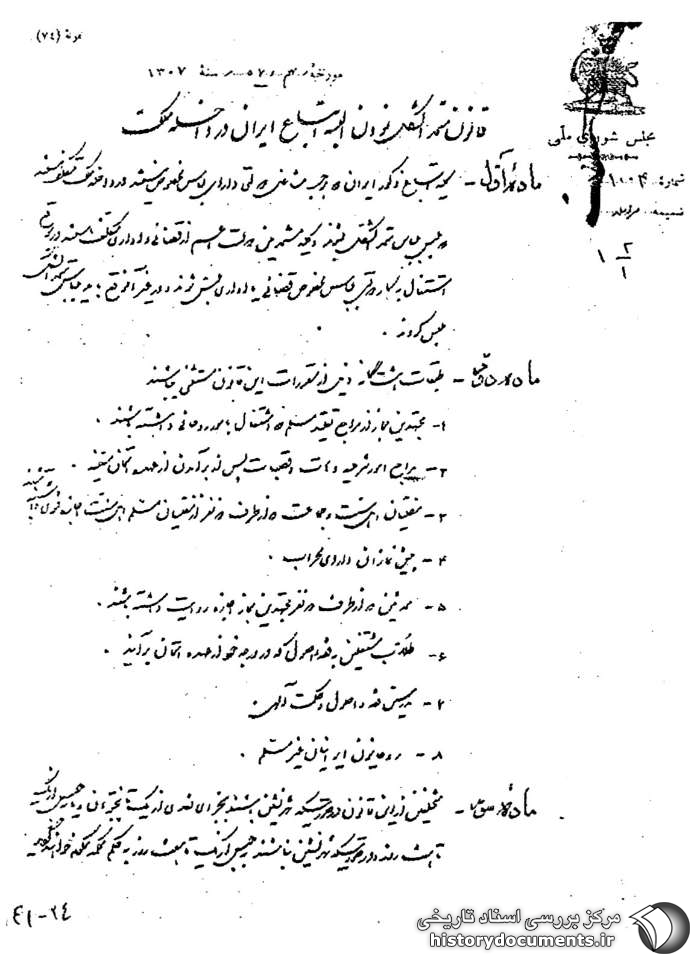 نمرهٔ (٧٤)
مورخهٔ سنهٔ ١٣٠٧
قانون متحدالشکل نمودن البسه اتباع ایران در داخله مملکت
مجلس شورای ملی
نمرهٔ ١٠٠٤
ضمیمه
٢
١
١
مادهٔ اول - کلیه اتباع ذکور ایران که بر حسب مشاغل دولتی دارای لباس مخصوص نیستند در داخله مملکت مکلف هستند
که ملبس بلباس متحدالشکل بشوند و کلیه مستخدمین دولت اعم از قضائی و اداری مکلف هستند در موقع
اشتغال بکار دولتی بلباس مخصوص قضائی یا اداری ملبس شوند و در غیر آنموقع باید بلباس متحدالشکل
ملبس گردند .
مادهٔ دوم - طبقات هشتگانه ذیل از مقررات این قانون مستثنی میباشند
١- مجتهدین مجاز از مراجع تقلید مسلم که اشتغال بامور روحانی داشته باشند .
٢- مراجع امور شرعیه دهات و قصبات پس از برآمدن از عهده امتحان معینه .
٣- مفتیان اهل سنت و جماعت که از طرف دو نفر از مفتیان مسلم اهل سنت اجازه فتوی داشته باشند
٤- پیش نمازان دارای محراب .
٥- محدثین که از طرف دو نفر مجتهدین مجاز اجازه روایت داشته باشند .
٦- طلاب مشتغلین بفقه و اصول که در درجه خود از عهده امتحان برآیند .
٧- مدرسین فقه و اصول و حکمت الهی
٨- روحانیون ایرانیان غیر مسلم .
مادهٔ سوم - متخلفین از این قانون در صورتیکه شهرنشین باشند بجزای نقدی از یک تا پنج تومان یا بحبس از یک
تا هفت روز و در صورتیکه شهرنشین نباشند بحبس از یک تا هفت روز بحکم محکمه محکوم خواهند گردید
٤١-٢٤
مرکز بررسی اسناد تاریخی
historydocuments.ir